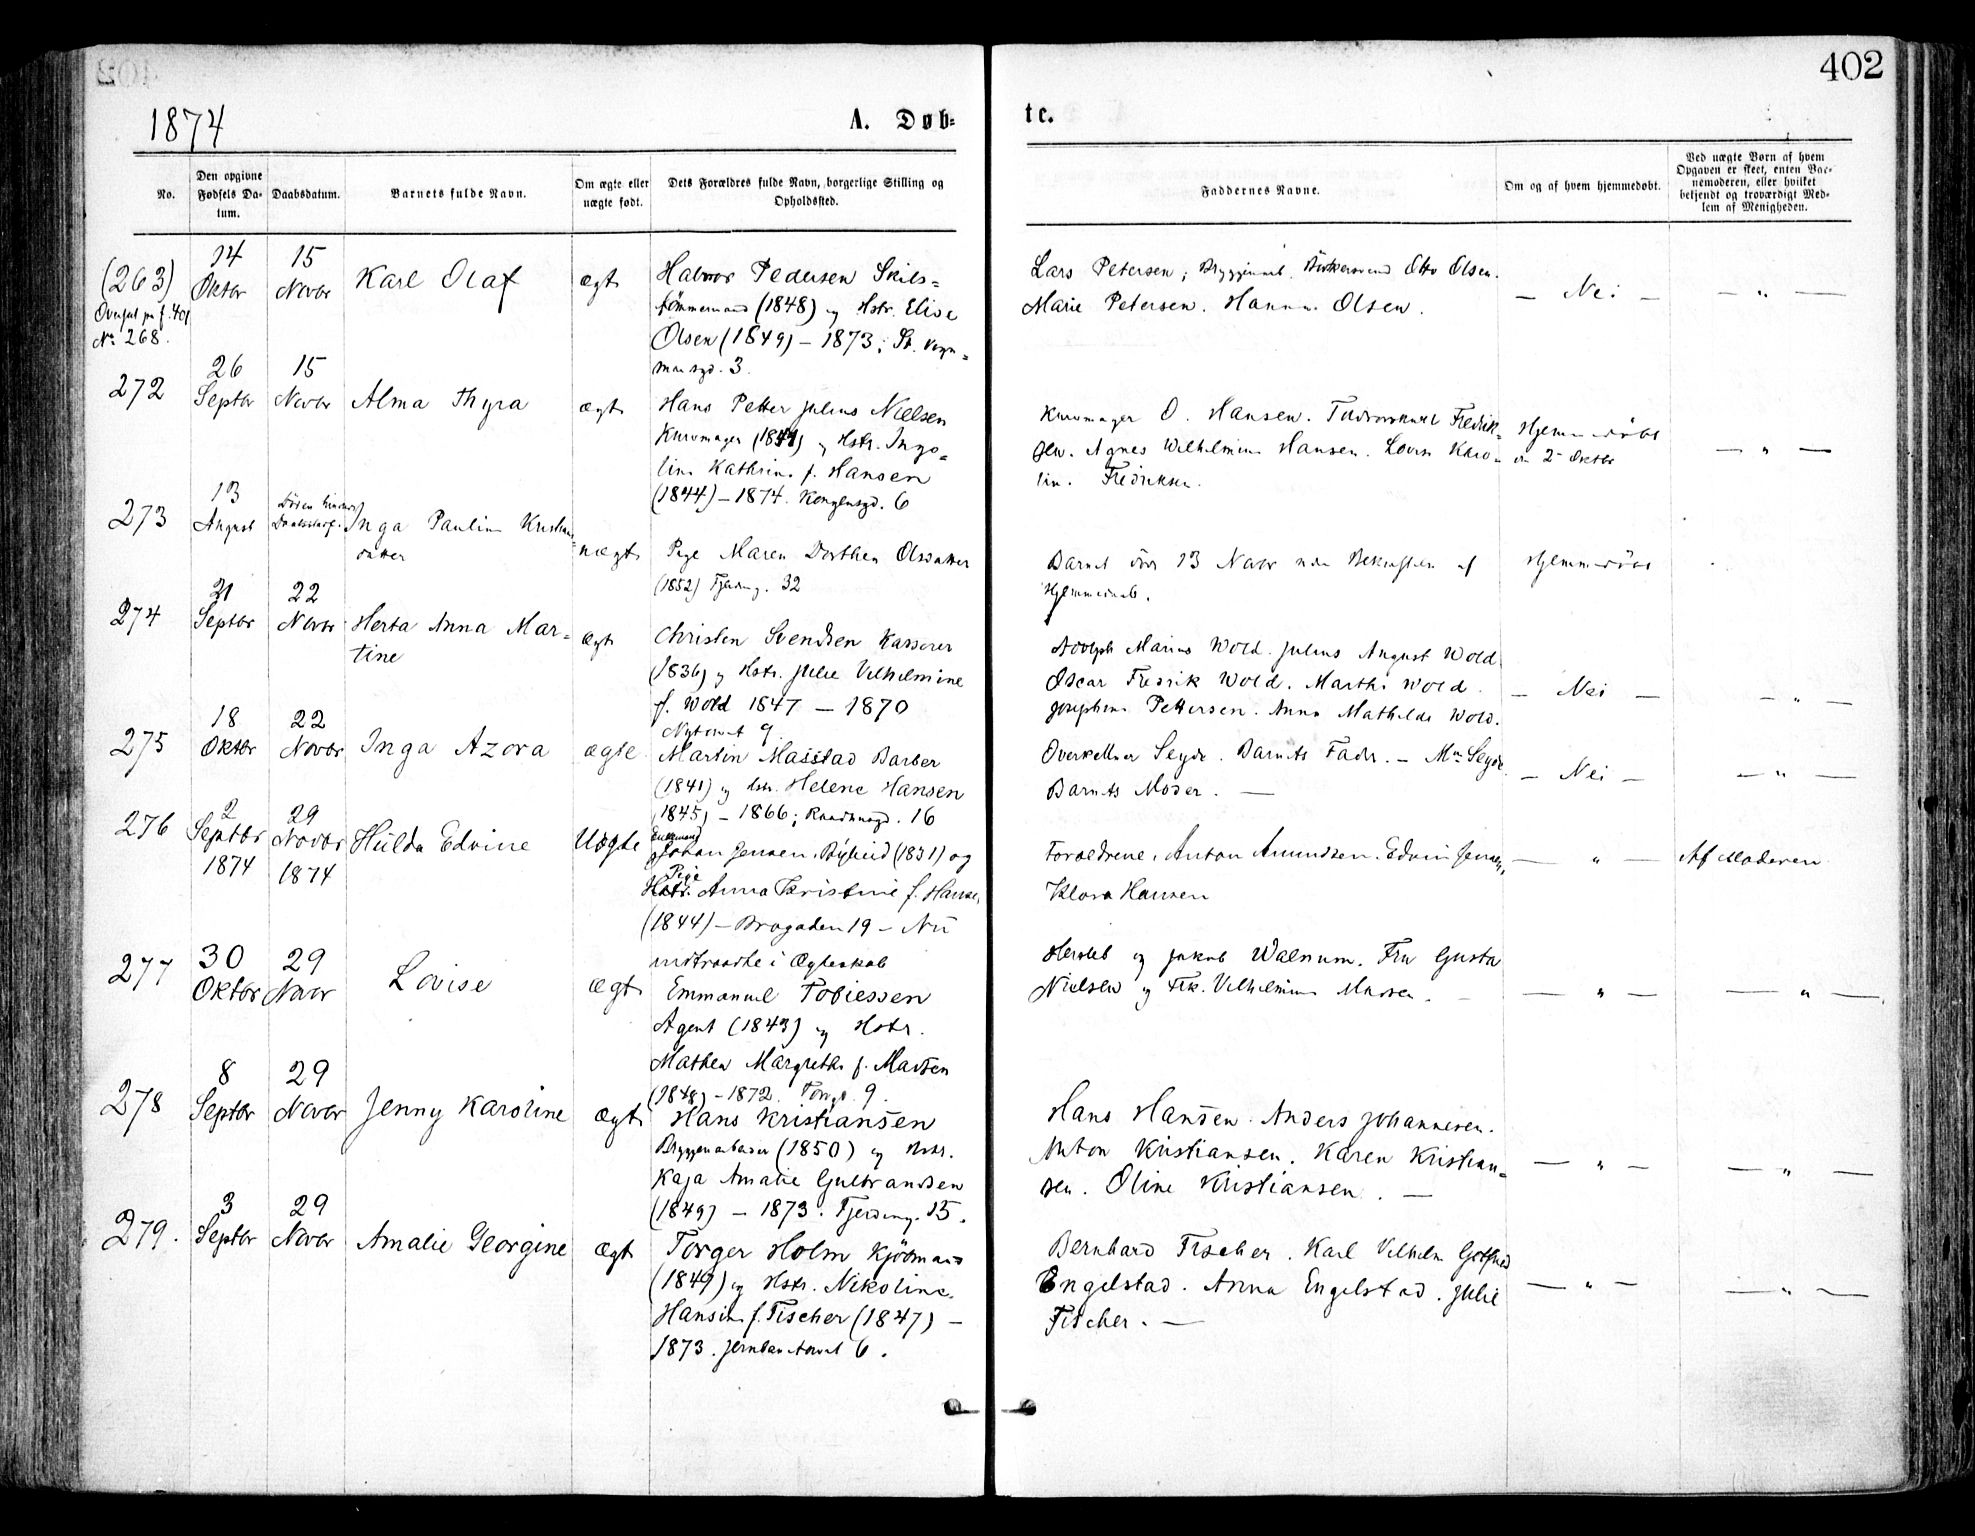 402
1874
A. Døb-
te.
No.
Den opgivne
Fødsels Da-
tum.
Daabsdatum.
Barnets fulde Navn.
Om ægte eller
uægte født.
Dets Forældres fulde Navn, borgerlige Stilling og
Opholdssted.
Faddernes Navne.
Om og af hvem hjemmedøbt.
Ved uægte Børn af hvem
Opgaven er skeet, enten Bar-
nemoderen, eller hvilket
bekjendt og troværdigt Med-
lem af Menigheden.
(263)
f. 401
No 268.
14
Oktbr
15
Novbr
Karl Olaf
ægt
Halvor Pedersen Skibs-
tømmermand (1848) og Hstr. Elise
Olsen (1849) - 1873;
3.
Lars Petersen; Otto Olsen.
Marie Petersen. Hanna Olsen.
- Nei -
- " -
272
26
Septbr
15
Novbr
Alma Thyra
ægt
Hans Petter Julius Nielsen
Kurvmager og Hstr. Ingo-
line Kathrine f. Hansen
(1844) - 1874. Kongensgd. 6
Kurvmager O. Hansen. Fredrik-
sen. Agnes Wilhelmine Hansen. Lovise Karo-
line Fredriksen.
Hjemmedøbt
2 Oktbr
- " -
273
13
August
Inga Pauline Kristians-
datter
uægt
Pige Maren Dorthea Olsdatter
(1852) Fjerding. 32
Barnet døde 13 Novbr
Hjemmedaab.
Hjemmedøbt
274
21
Septbr
22
Novbr
Herta Anna Mar-
tine
ægt
Christen Svendsen Kasserer
(1836) og Hstr. Julie Vilhelmine
f. Wold 1847 - 1870
Nytorvet 9
Adolph Marius Wold. Julius August Wold
Oscar Fredrik Wold. Marthe Wold.
Josephine Pettersen. Anna Mathilde Wold.
- Nei -
- " -
275
18
Oktbr
22
Novbr
Inga Azora
ægte
Martin Masstad Barber
(1841) og Hstr. Helene Hansen
1845) - 1866; Raadhusgd. 16
Overkellner Seyde. Barnets Fader. - Seyde
Barnets Moder. -
- Nei -
- " -
276
2
Septbr
1874
29
Novbr
1874
Hulda Edvine
Uægte
Enkemand
Johan Jensen, (1831) og
Pige
Hstr. Anna Kristine f. Hansen
(1844) - 19 - Nu
indtraadte i Ægteskab
Foreldrene, Anton Amundsen. Edvin Jensen,
Klara Hansen
- " -
Af Moderen
277
30
Oktbr
29
Novbr
Lovise
ægt
Emmanuel Tobiessen
Agent (1843) og Hstr.
Mathea Margrethe f. Madsen
(1848) - 1872. Torvgd. 9.
Hersleb og Jakob Walnum. Fru Gusta
Nielsen og Frk. Vilhelmine Madsen. -
- " -
- " -
278
8
Septbr
29
Novbr
Jenny Karoline
ægt
Hans Kristiansen
Bryggearbeider (1850) og Hstr.
Kaja Amalie Gulbrandsen
(1849) - 1873. Fjerding. 15.
Hans Hansen. Anders Johannesen.
Anton Kristiansen. Karen Kristian-
sen. Oline Kristiansen. -
- " -
- " -
279.
3
Septbr
29
Novbr
Amalie Georgine
ægt
Torger Holm Kjøbmand
(1849) og Hstr. Nikoline
Hansine f. Fischer (1847) -
1873. Jernbanetorvet 6.
Bernhard Fischer. Karl Vilhelm Gotfried
Engelstad. Anna Engelstad. Julie
Fischer. -
- " -
- " -